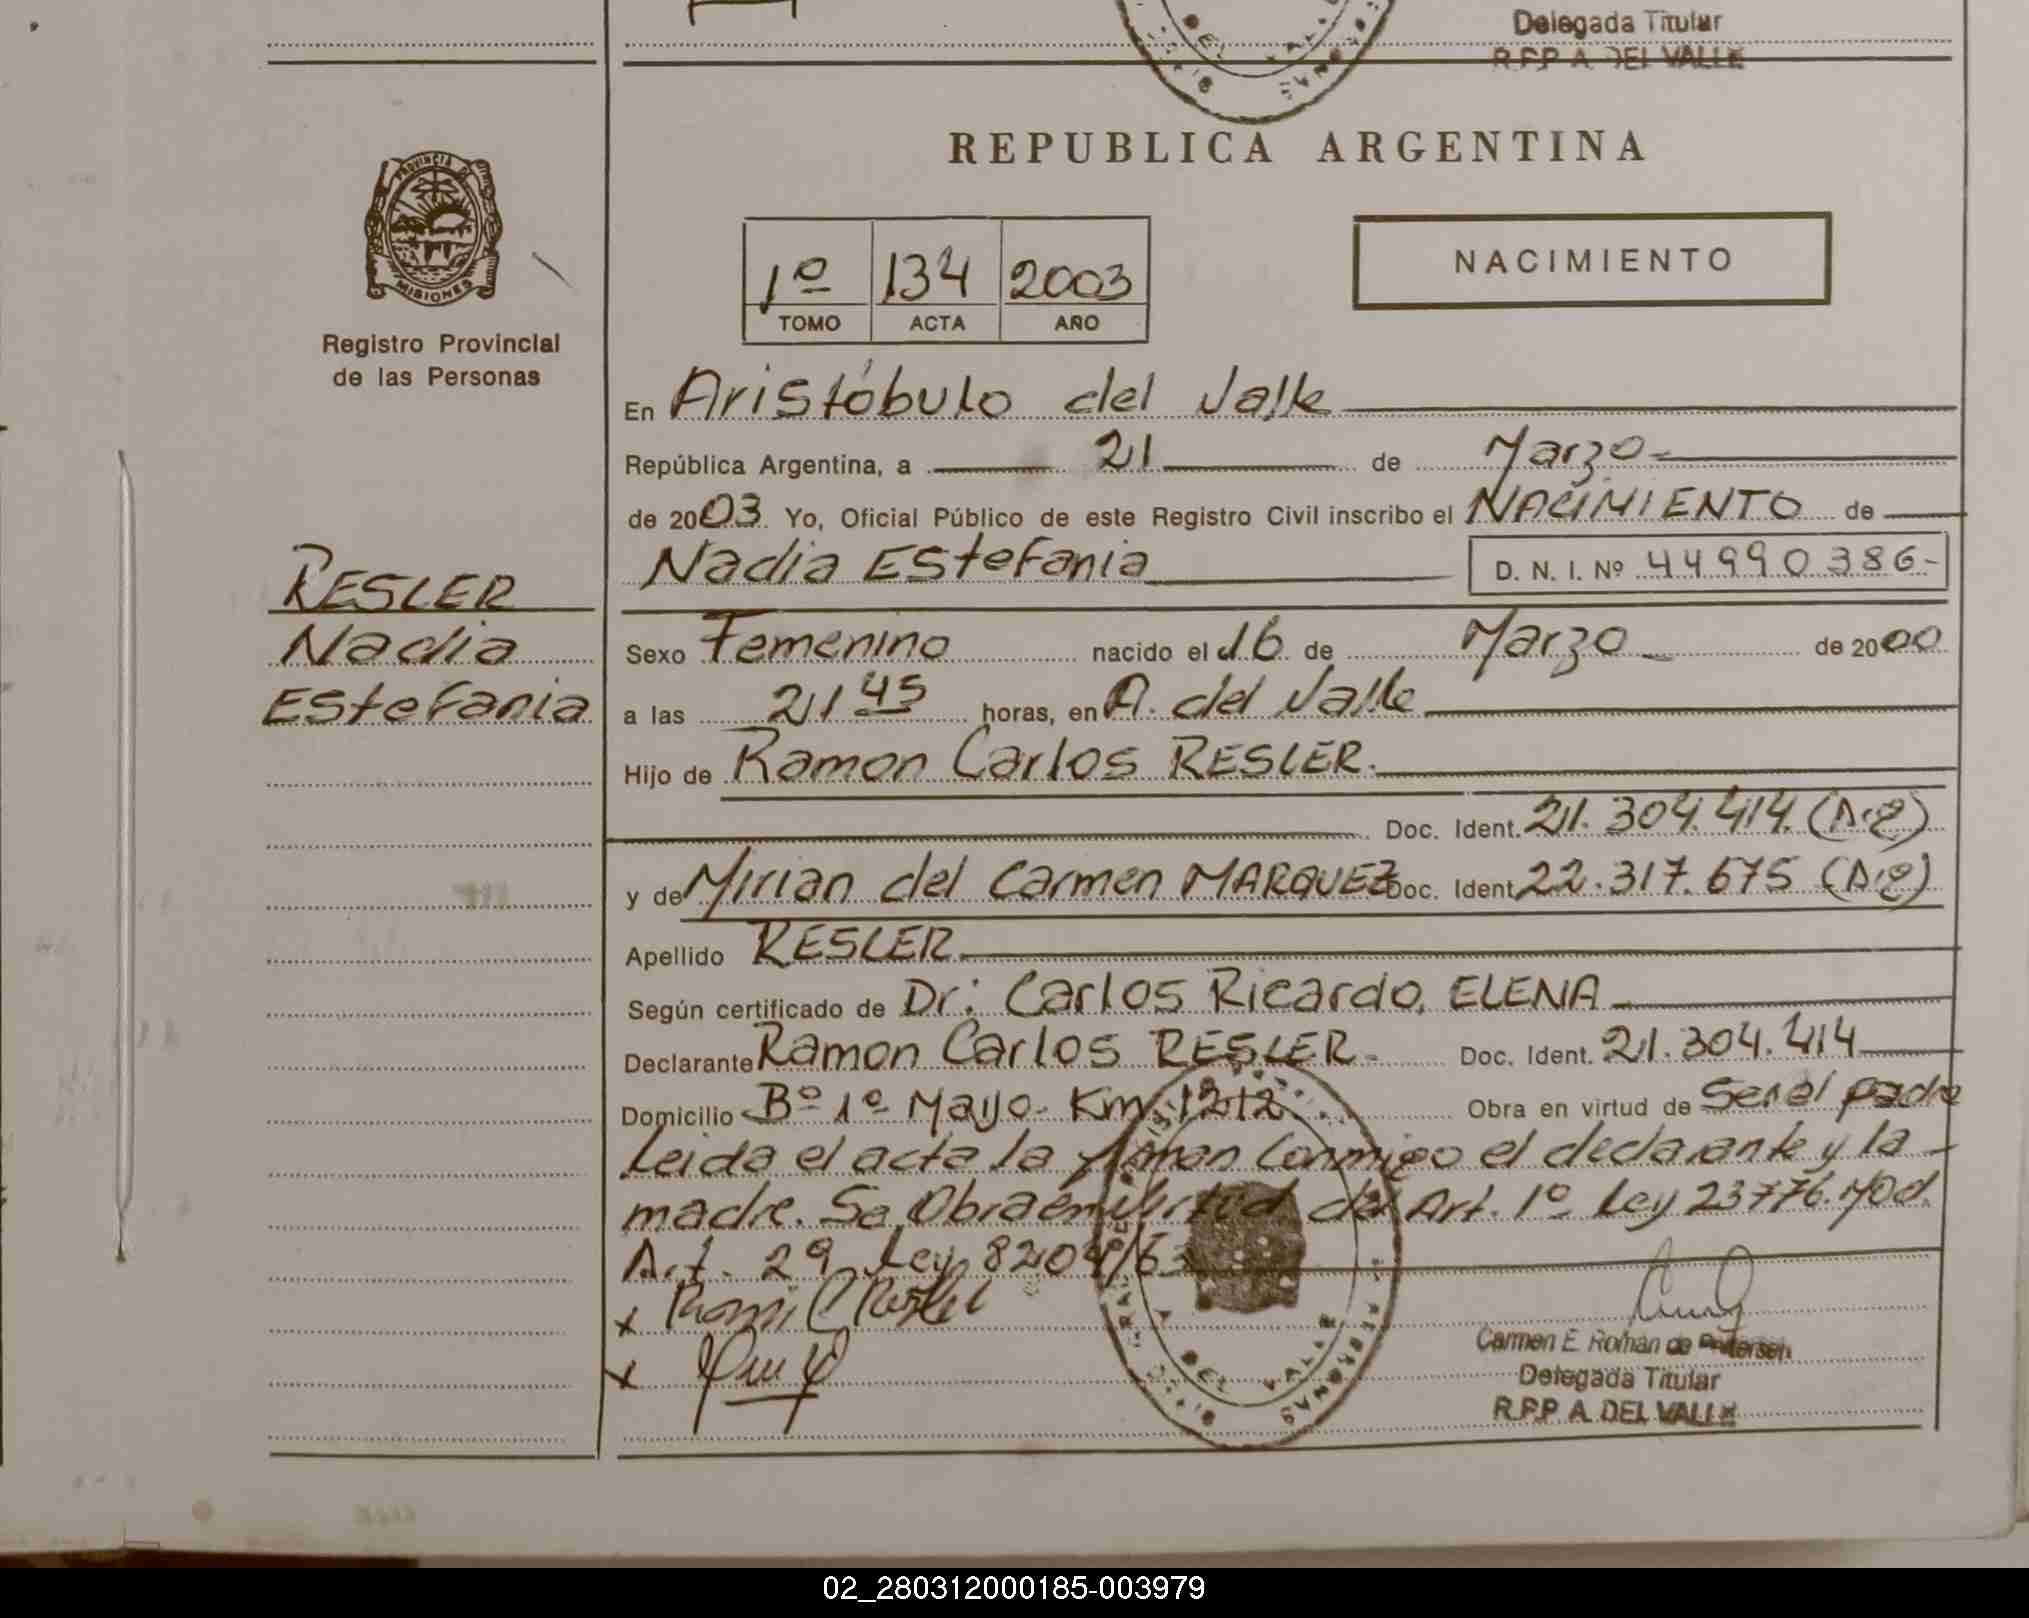 Delegada Titular
R.P.P A DEL VALLE
PROVINCIA DE
MISIONES
Registro Provincial
de las Personas
RESLER
Nadia
Estefania
REPUBLICA ARGENTINA
NACIMIENTO
1º 134 2003
TOMO ACTA AÑO
En Aristóbulo del Valle
República Argentina, a 21 de Marzo
de 2003 Yo, Oficial Público de este Registro Civil inscribo el NACIMIENTO de
Nadia Estefania D. N. I. Nº 44990386-
Sexo Femenino nacido el 16 de Marzo de 2000
a las 21 45 horas, en A. del Valle
Hijo de Ramon Carlos RESLER.
Doc. Ident. 21.304.414
y de Mirian del Carmen MARQUEZ Doc. Ident. 22.317.675
Apellido RESLER
Según certificado de Dr: Carlos Ricardo, ELENA
Declarante Ramon Carlos RESLER Doc. Ident. 21.304.414
Domicilio Bº 1º Mayo Km. 1212 Obra en virtud de Ser el padre
Leida el acta la firman Conmigo el declarante y la
madre. Se Obra en Virtud del Art. 1º Ley 23776. Mod.
Art. 29 Ley 8204/63
x
x
DEL VALLE
Carmen E. Román de
Delegada Titular
R.P.P A. DEL VALLE
02_280312000185-003979